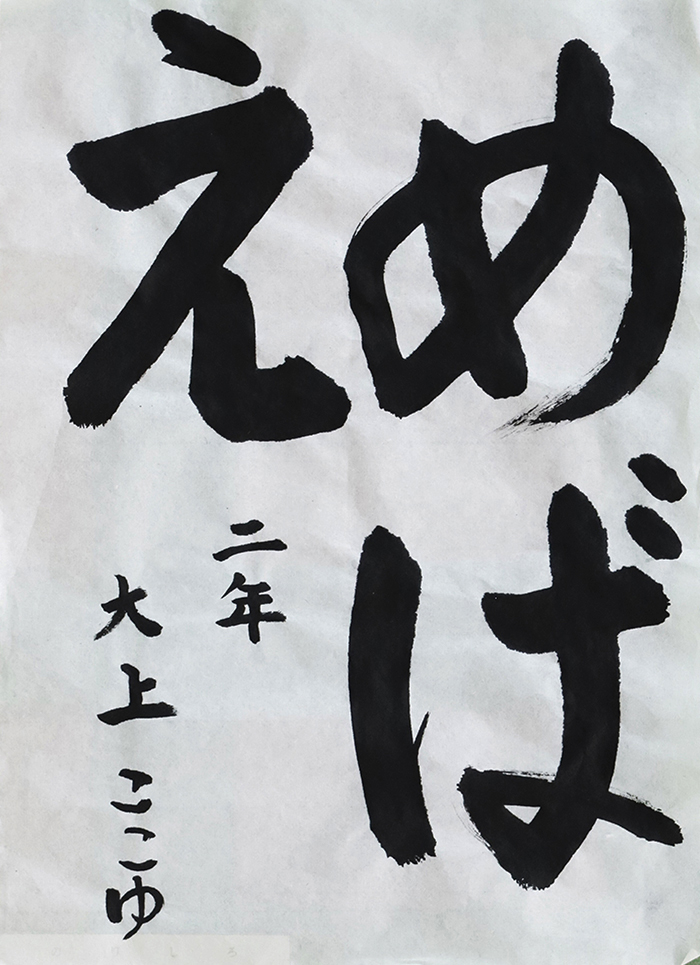 めば
え
二年
大上ここゆ